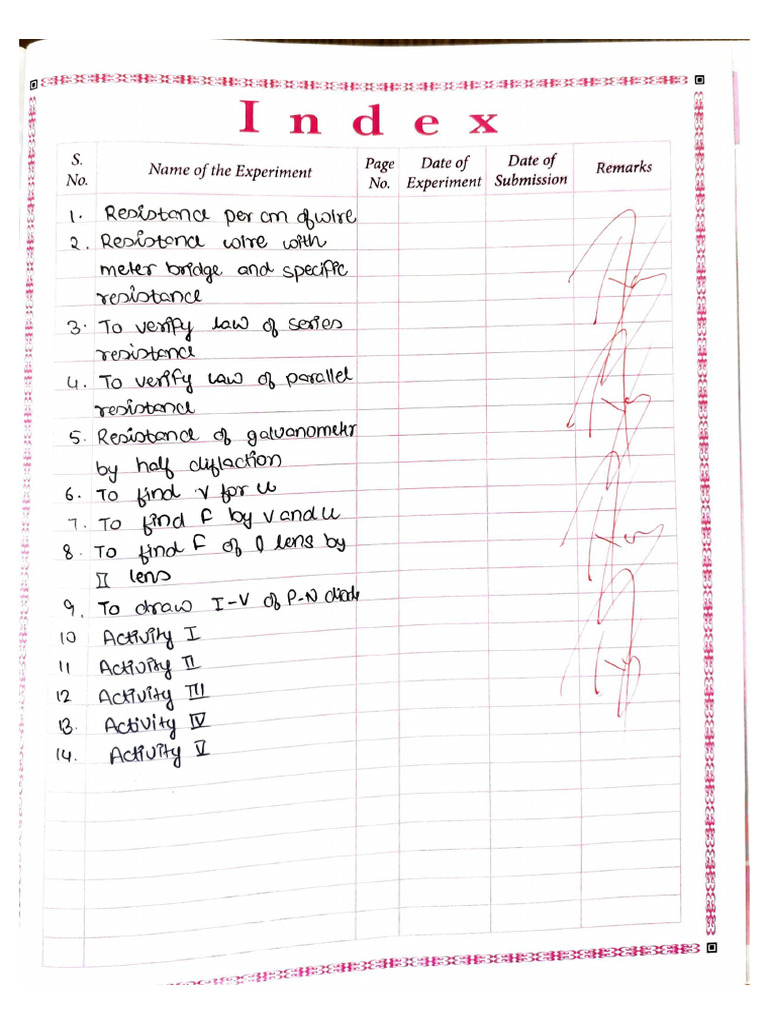 Index
S. No. Name of the Experiment Page No. Date of Experiment Date of Submission Remarks
1. Resistance per cm of wire
2. Resistanc wire with
meter bridge and specific
resistance
3. To verify law of series
resistance
4. To verify law of parallel
resistance
5. Resistance of galvanometr
by half diflaction
6. To find v for u
7. To find F by v and u
8. To find F of () lens by
II lens
9. To draw I-V of P-N diode
10 Activity I
11 Activity II
12 Activity III
13. Activity IV
14. Activity V